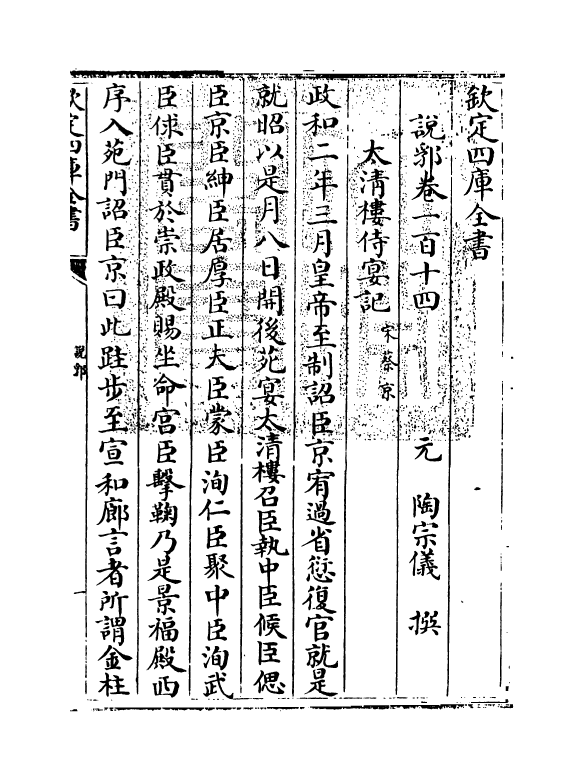 欽定四庫全書
說郛卷一百十四
元 陶宗儀 撰
太清樓侍宴記 宋蔡京
政和二年三月皇帝至制詔臣京宥過省愆復官就是
就昭以是月八日開後苑宴太清樓召臣執中臣俟臣偲
臣京臣紳臣居厚臣正夫臣蒙臣洵仁臣聚中臣洵武
臣俅臣貫於崇政殿賜坐命宫臣擊鞠乃是景福殿西
序入苑門詔臣京曰此跬步至宣和廊言者所謂金柱
欽定四庫全書
說郛
一